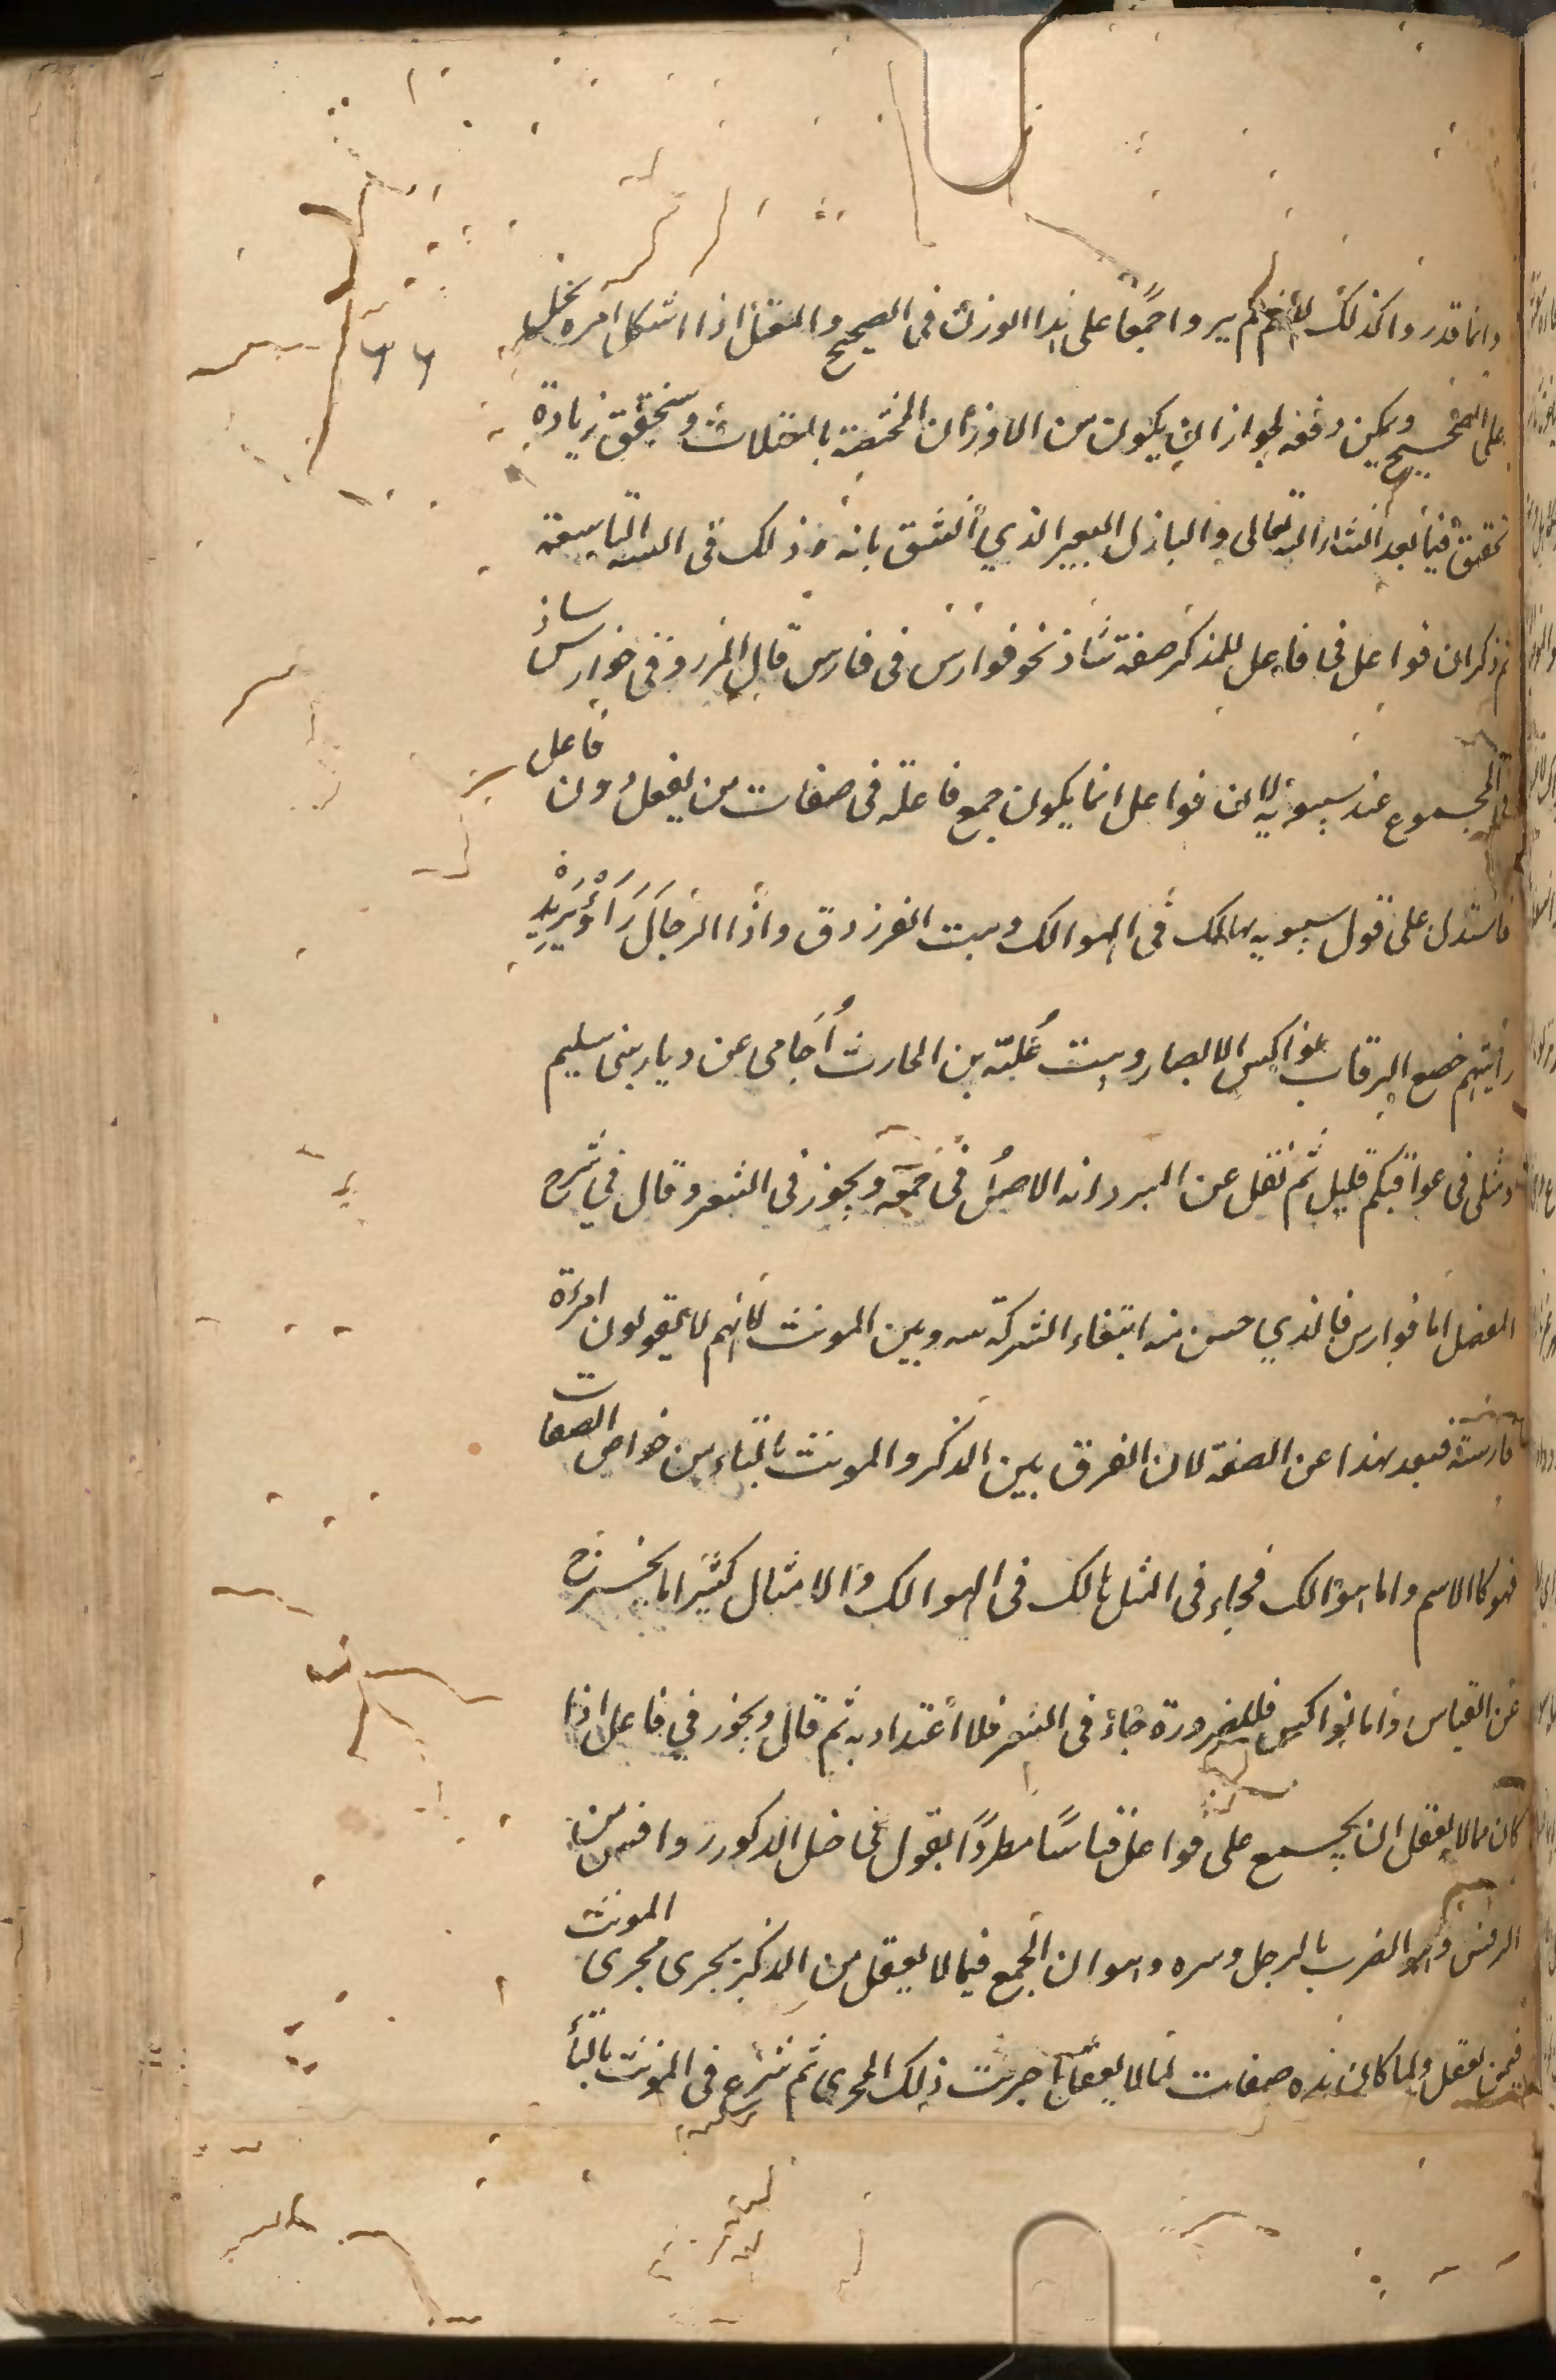 وانما قدروا كذلك لانهم لم يروا جمعا على هذا الوزن في الصحيح والمعتل اذا اشكل امره يحمل
على الصحيح ويمكن دفعه لجواز ان يكون من الاوزان المختصة بالمعتلات وسنحقق زيادة
تحقيق فيما بعد انشاء الله تعالى والبازل البعير الذي انشق نابه وذلك في السنة التاسعة
ثم ذكر ان فواعل في فاعل للمذكر صفة شاذ نحو فوارس في فارس قال المرزوقي فوارس شاذ
في الجموع عند سيبويه لان فواعل انما يكون جمع فاعلة في صفات من يعقل دون فاعل
فاستدل على قول سيبويه هالك في الهوالك وبيت الفرزدق واذا الرجال رأوا يزيد
رأيتهم خضع الرقاب نواكس الابصار وبيت عتبة بن الحارث احامي عن ديار بني سليم
ومثلي في غوائبكم قليل ثم نقل عن المبرد انه الاصل في جمعه ويجوز في الشعر وقال في شرح
المفصل اما فوارس فالذي حسن منه انتفاء الشركة بينه وبين المونث لانهم لا يقولون امرءة
فارسة فبعد هذا عن الصفة لان الفرق بين المذكر والمونث بالتاء من خواص الصفات
فهو كالاسم واما هوالك فجاء في المثل هالك في الهوالك والامثال كثيرا ما يخرج
عن القياس واما نواكس فللضرورة جاء في الشعر فلا اعتداد به ثم قال ويجوز في فاعل اذا
كان لما لا يعقل ان يجمع على فواعل قياسا مطردا يقول في فاضل الذكور روافس من
الرفس وهو الضرب بالرجل وسره وهو ان الجمع فيما لا يعقل من المذكر يجرى مجرى المونث
فيمن يعقل ولما كان هذه صفات لما لا يعقل اجريت ذلك المجرى ثم شرع في المونث بالتاء